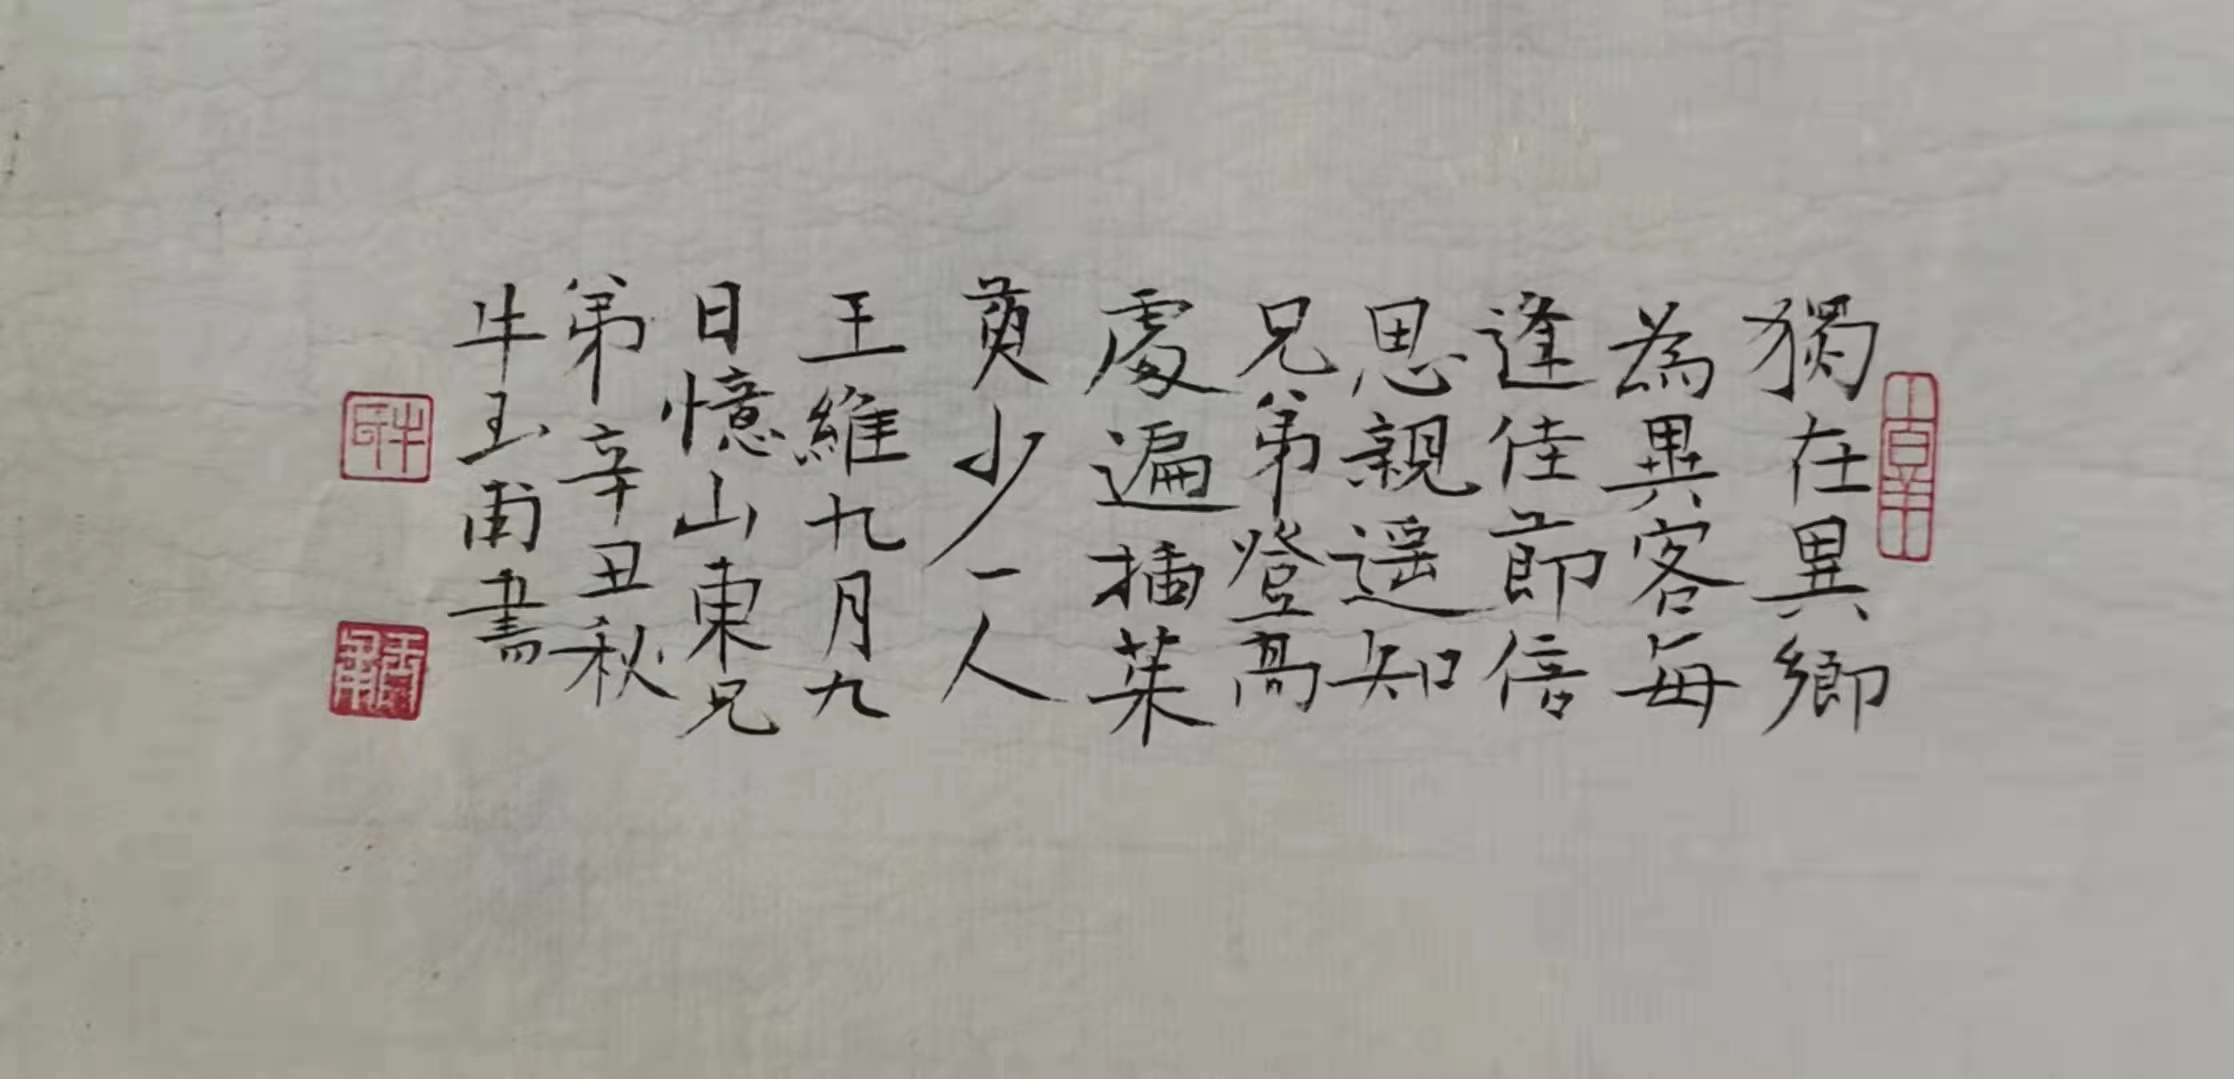 獨在異鄉
為異客每
逢佳節倍
思親遥知
兄弟登高
處遍插茱
萸少一人
王維九月九
日憶山東兄
弟辛丑秋
牛玉甫書